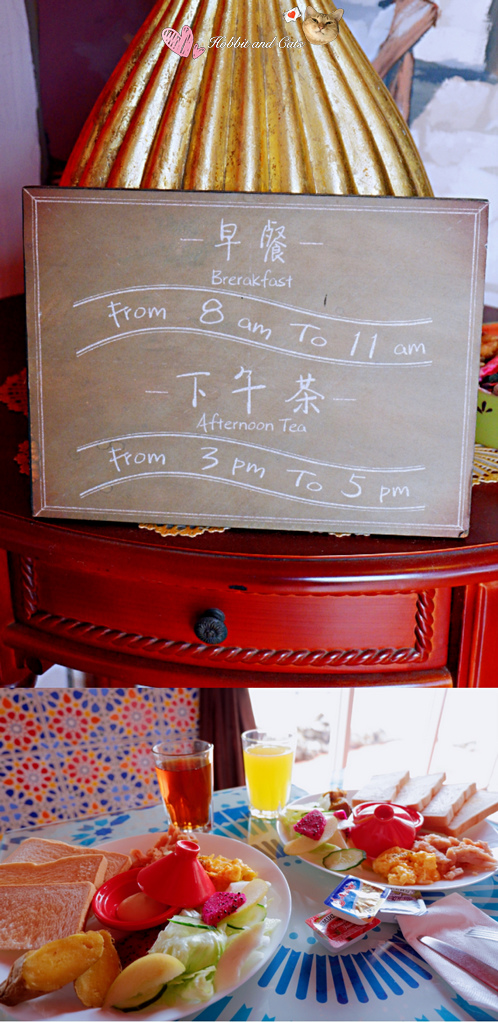 Hobbit and Cats
—早餐—
Brerakfast
From 8 am To 11 am
—下午茶—
Afternoon Tea
From 3 pm To 5 pm